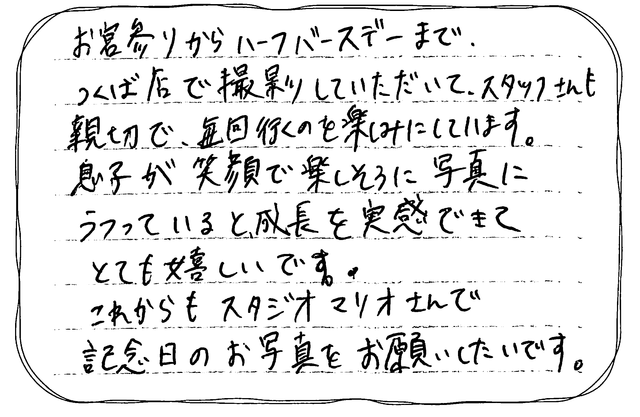 お宮参りからハーフバースデーまで、
つくば店で撮影していただいて、スタッフさんも
親切で、毎回行くのを楽しみにしています。
息子が笑顔で楽しそうに写真に
うつっていると、成長を実感できて
とても嬉しいです。
これからもスタジオマリオさんで
記念日のお写真をお願いしたいです。